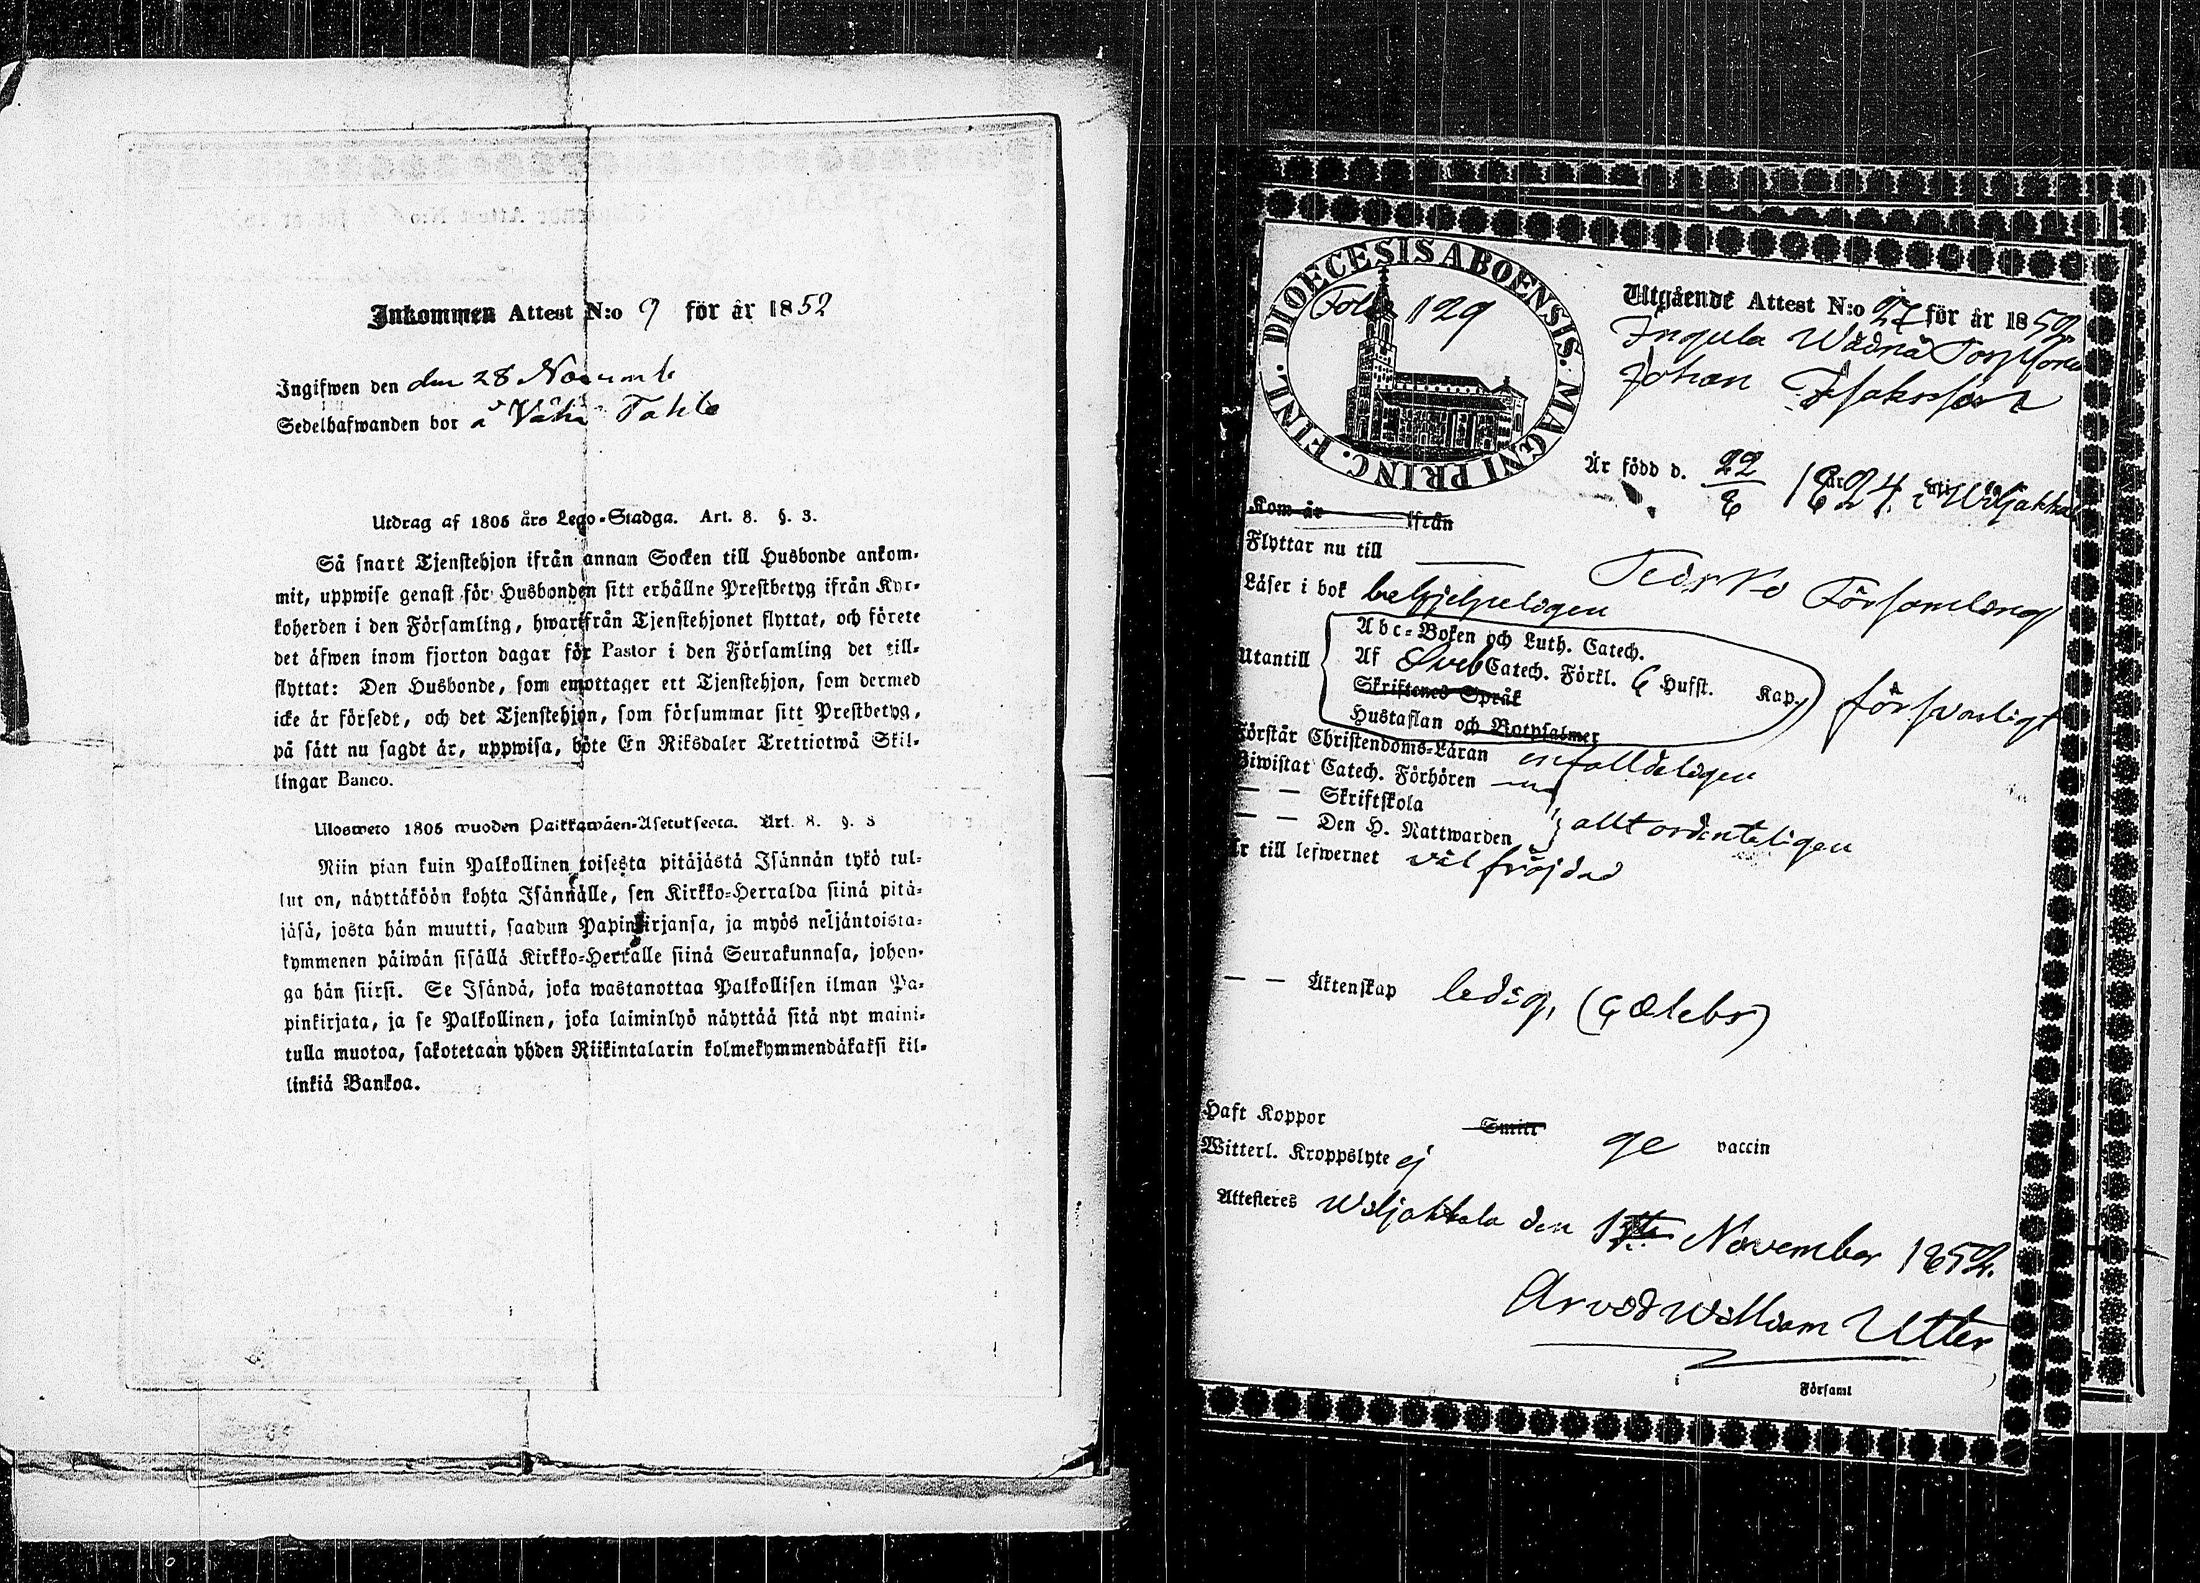 Inkommen Attest N:o 9 för år 1852
Ingifwen den den 28 Novemb
Sedelhafwanden bor å Vähä Tahlo
Utdrag af 1805 års Lego-Stadga. Art. 8. §. 3.
Så snart Tjenstehjon ifrån annan Socken till Husbonde ankom-
mit, uppwise genast för Husbonden sitt erhållne Prestbetyg ifrån Kyr-
koherden i den Församling, hwarifrån Tjenstehjonet flyttat, och förete
det äfwen inom fjorton dagar för Pastor i den Församling det till-
flyttat: Den Husbonde, som emottager ett Tjenstehjon, som dermed
icke är försedt, och det Tjenstehjon, som försummar sitt Prestbetyg,
på sätt nu sagdt är, uppwisa, böte En Riksdaler Trettiotwå Skil-
lingar Banco.
Ulosweto 1805 wuoden Palkkawäen-Asetuksesta. Art. 8. §. 3
Niin pian kuin Palkollinen toisesta pitäjästä Isännän tykö tul-
lut on, näyttäköön kohta Isännälle, sen Kirkko-Herralda siinä pitä-
jäsä, josta hän muutti, saadun Papinkirjansa, ja myös neljäntoista-
kymmenen päiwän sisällä Kirkko-Herralle siinä Seurakunnasa, johon-
ga hän siirsi. Se Isändä, joka wastanottaa Palkollisen ilman Pa-
pinkirjata, ja se Palkollinen, joka laiminlyö näyttää sitä nyt maini-
tulla muotoa, sakotetaan yhden Riikintalarin kolmekymmendäkaksi kil-
linkiä Bankoa.
DIOECESIS ABOENSIS. MAGNI PRINC. FINL.
Fol. 129
Utgående Attest N:o 27 för år 1852
Ingula
Johan Isaksson
Är född d. 22/8 1824 i Wiljakkala
Kom år ifrån
Flyttar nu till Församling
Läser i bok behjelpeligen
Abc-Boken och Luth. Catech.
Utantill Af Sveb Catech. Förkl. 6 Hufst. Kap. försvarligt
Skriftenes Språk
Hustaflan och Botpsalmer
Förstår Christendoms-Läran enfalldeligen
Biwistat Catech. Förhören
— — Skriftskola
— — Den H. Nattwarden allt ordenteligen
Är till lefwernet väl fräjdad
— — Äktenskap ledig, (Cælebs)
Haft Koppor Smitt ge vaccin
Witterl. Kroppslyte ej
Attesteres Wiljakkala den November 1852.
Arvid William Utter
i Församl